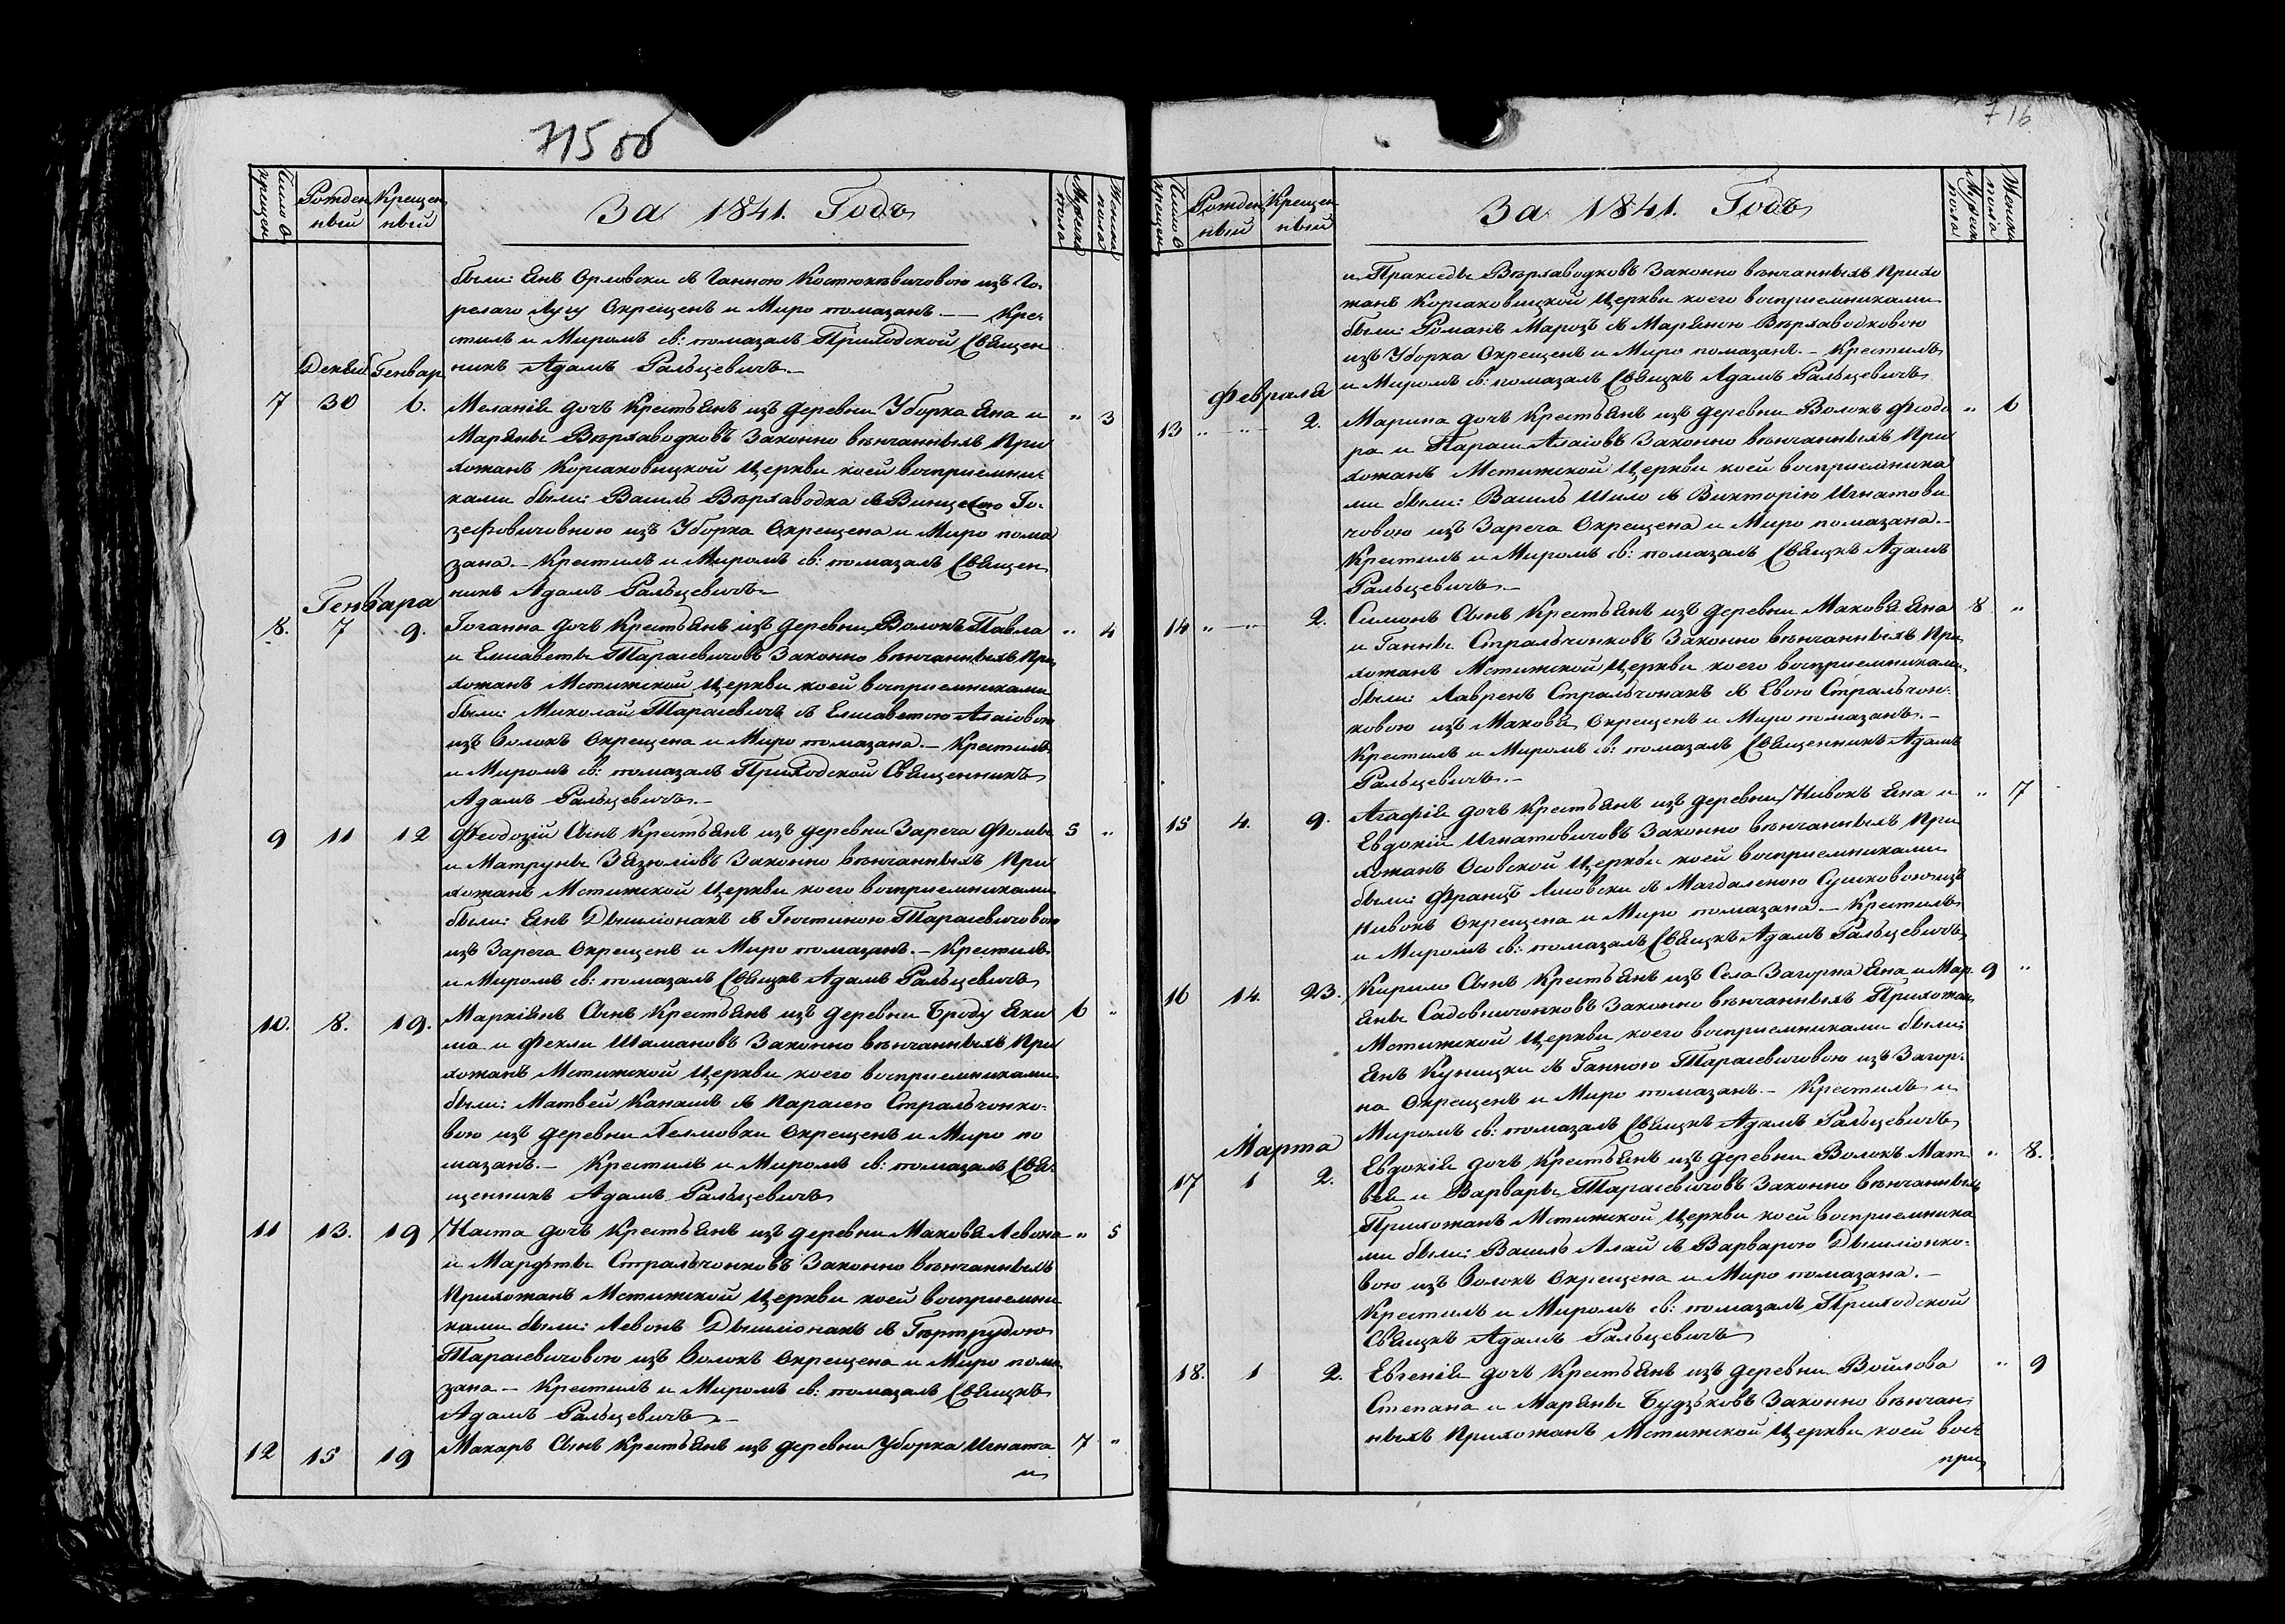 715 об
Число
крещен
Рожден
ный
Крещен
ный
За 1841. Годъ
Мужска
пола
Женска
пола
были: Янъ Орловски съ Ганною Костюкевичовою изъ Го-
релаго Лугу Окрещенъ и Миро помазанъ. — Кре-
стилъ и Миромъ св: помазалъ Приходской Священ
никъ Адамъ Ральцевичъ. —
Декаб Генвар
7 30 6. Меланія дочь Крестьянъ изъ деревни Уборка Яна и " 3
Марьяны Вѣрхаводковъ Законно вѣнчанныхъ При
хожанъ Корсаковицкой Церкви коей восприемни-
ками были: Василь Вѣрхаводка съ Винцесею Іо-
зефовичовною изъ Уборка Окрещена и Миро пома
зана. — Крестилъ и Миромъ св: помазалъ Священ
никъ Адамъ Ральцевичъ —
Генвара
8. 7 9. Іоганна дочь Крестьянъ изъ деревни Волокъ Павла " 4
и Елисаветы Тарасевичовъ Законно вѣнчанныхъ При
хожанъ Мстижской Церкви коей восприемниками
были: Миколай Тарасевичъ съ Елисаветою Алаіовою
изъ Волокъ Окрещена и Миро помазана. — Крестилъ
и Миромъ св: помазалъ Приходской Священникъ
Адамъ Ральцевичъ. —
9 11 12 Феодозій Сынъ Крестьянъ изъ деревни Зареча Фомы 5 "
и Матруны Зязюліовъ Законно вѣнчанныхъ При
хожанъ Мстижской Церкви коего восприемниками
были: Янъ Дышліонакъ съ Іюстиною Тарасевичовою
изъ Зареча Окрещенъ и Миро помазанъ. — Крестилъ
и Миромъ св: помазалъ Свящкъ Адамъ Ральцевичъ
10. 8. 19. Маркіянъ Сынъ Крестьянъ изъ деревни Броду Яки 6 "
ма и Фекли Шамановъ Законно вѣнчанныхъ При
хожанъ Мстижской Церкви коего восприемниками
были: Матвей Канашъ съ Парасею Стральчонко-
вою изъ деревни Хелмовки Окрещенъ и Миро по
мазанъ. — Крестилъ и Миромъ св: помазалъ Свя-
щенникъ Адамъ Ральцевичъ
11 13. 19 Наста дочь Крестьянъ изъ деревни Маковя Левона " 5
и Марфты Стральчонковъ Законно вѣнчанныхъ
Прихожанъ Мстижской Церкви коей восприемни
ками были: Левонъ Дышліонакъ съ Гертрудою
Тарасевичовою изъ Волокъ Окрещена и Миро пома
зана — Крестилъ и Миромъ св: помазалъ Свящкъ
Адамъ Ральцевичъ —
12 15 19 Макаръ Сынъ Крестьянъ изъ деревни Уборка Игната 7 "
и
716
Число
крещен
Рожден
ный
Крещен
ный
За 1841. Годъ
Мужска
пола
Женска
пола
и Пракседы Вѣрхаводковъ Законно вѣнчанныхъ Прихо
жанъ Корсаковицкой Церкви коего восприемниками
были: Романъ Марозъ съ Марьяною Вѣрхаводковою
изъ Уборка Окрещенъ и Миро помазанъ. — Крестилъ
и Миромъ св: помазалъ Свящкъ Адамъ Ральцевичъ
Февраля
13 " — " — 2. Марина дочь Крестьянъ изъ деревни Волокъ Феодо " 6
ра и Параси Алаіовъ Законно вѣнчанныхъ При
хожанъ Мстижской Церкви коей восприемника
ми были: Василь Шило съ Викторію Игнатови
човою изъ Зареча Окрещена и Миро помазана. —
Крестилъ и Миромъ св: помазалъ Свящкъ Адамъ
Ральцевичъ —
14 " — " 2. Симонъ Сынъ Крестьянъ изъ деревни Маковя Яна 8 "
и Ганны Стральчонковъ Законно вѣнчанныхъ При
хожанъ Мстижской Церкви коего восприемниками
были: Лавренъ Стральчонакъ съ Евою Стральчон-
ковою изъ Маковя Окрещенъ и Миро помазанъ. —
Крестилъ и Миромъ св: помазалъ Священникъ Адамъ
Ральцевичъ. —
15 4. 9. Агафія дочь Крестьянъ изъ деревни Нивокъ Яна и " 7
Евдокіи Игнатовичовъ Законно вѣнчанныхъ При
хожанъ Осовской Церкви коей восприемниками
были: Францъ Лисовски съ Магдаленою Сушковою изъ
Нивокъ Окрещена и Миро помазана — Крестилъ
и Миромъ св: помазалъ Свящкъ Адамъ Ральцевичъ
16 14. 23. Кирило Сынъ Крестьянъ изъ Села Загорна Яна и Мар- 9 "
яны Садовничонковъ Законно вѣнчанныхъ Прихожан
Мстижской Церкви коего восприемниками были:
Янъ Куницки съ Ганною Тарасевичовою изъ Загор-
на Окрещенъ и Миро помазанъ. — Крестилъ и
Миромъ св: помазалъ Свящкъ Адамъ Ральцевичъ
Марта
17 1 2. Евдокія дочь Крестьянъ изъ деревни Волокъ Мат " 8.
вея и Варвары Тарасевичовъ Законно вѣнчанныхъ
Прихожанъ Мстижской Церкви коей восприемника
ми были: Василь Алай съ Варварою Дышліонко-
вою изъ Волокъ Окрещена и Миро помазана. —
Крестилъ и Миромъ св: помазалъ Приходской
Свящкъ Адамъ Ральцевичъ
18. 1 2. Евгенія дочь Крестьянъ изъ деревни Войлова " 9
Степана и Марьяны Будзьковъ Законно вѣнчан
ныхъ Прихожанъ Мстижской Церкви коей вос
при